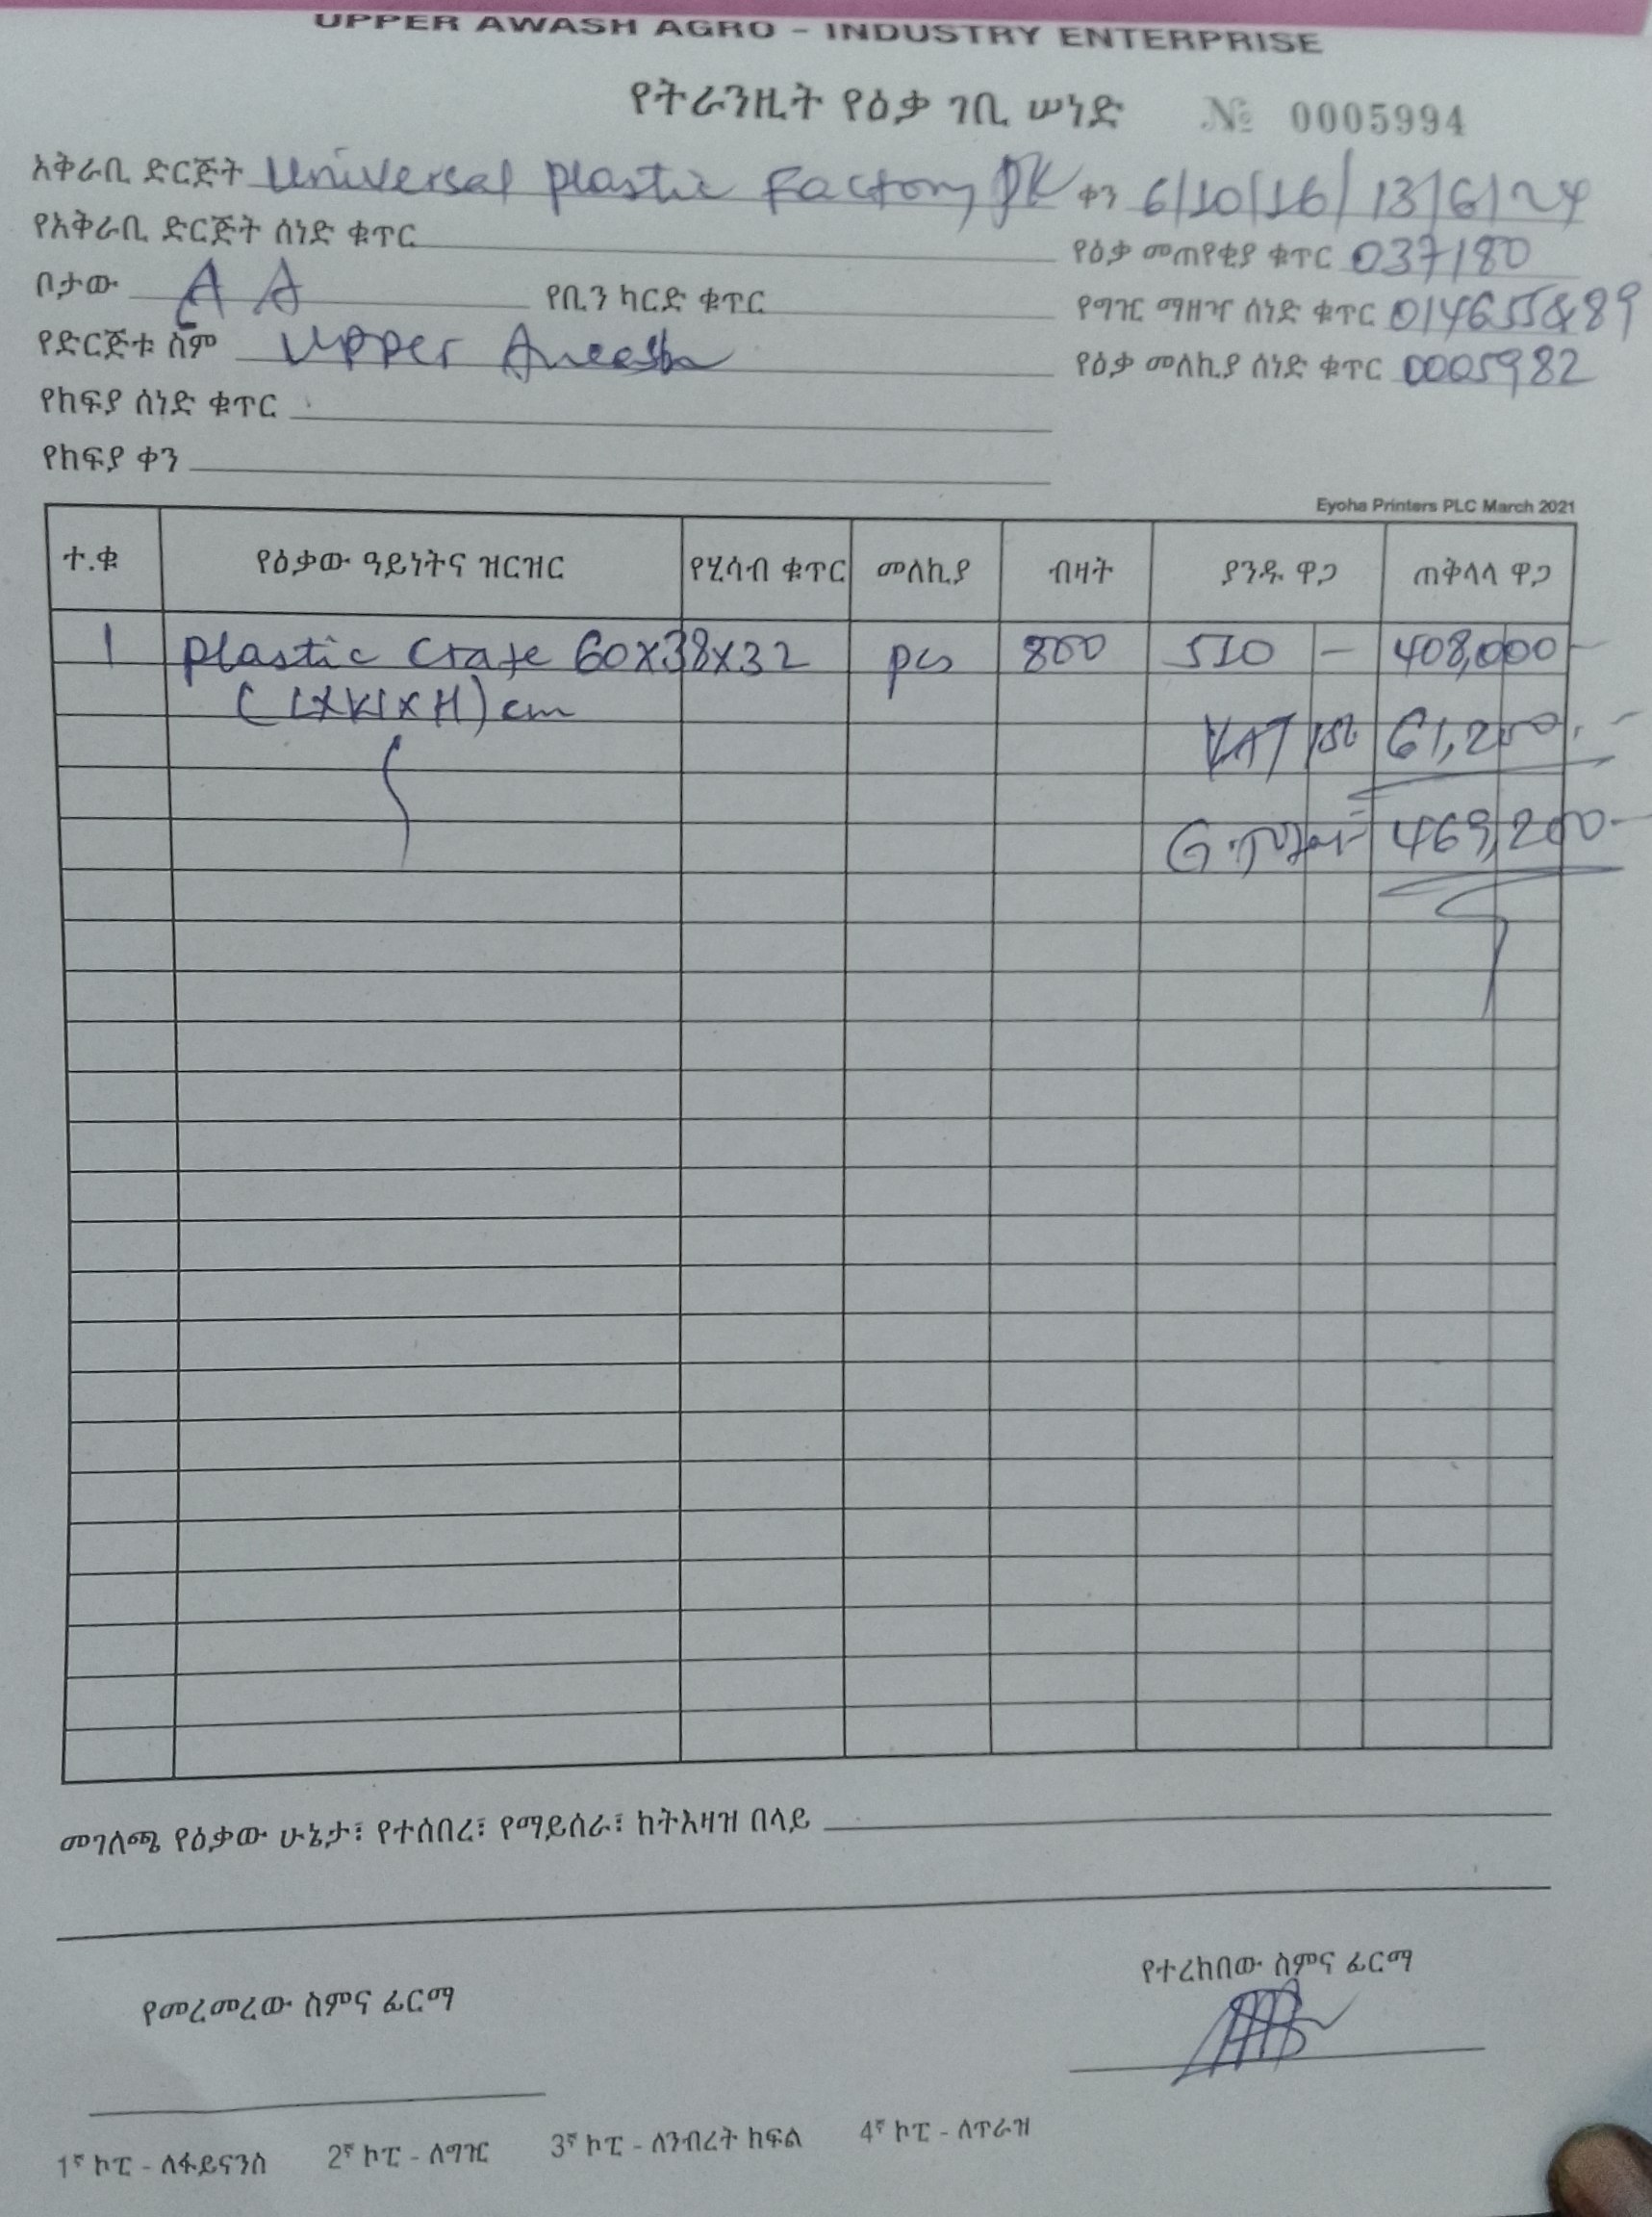 UPPER AWASH AGRO - INDUSTRY ENTERPRISE
የትራንዚት የዕቃ ገቢ ሠነድ № 0005994
አቅራቢ ድርጅት Universal plastic Factory ቀን 6/10/16/ 13/6/24
የአቅራቢ ድርጅት ሰነድ ቁጥር
የዕቃ መጠየቂያ ቁጥር 037180
ቦታው A A የቢን ካርድ ቁጥር
የግዢ ማዘዣ ሰነድ ቁጥር
የድርጅቱ ስም Upper Awash
የዕቃ መለኪያ ሰነድ ቁጥር 0005982
የከፍያ ሰነድ ቁጥር
የከፍያ ቀን
Eyoha Printers PLC March 2021
ተ.ቁ የዕቃው ዓይነትና ዝርዝር የሂሳብ ቁጥር መለኪያ ብዛት ያንዱ ዋጋ ጠቅላላ ዋጋ
1 plastic crate 60x38x32 pcs 800 510 - 408,000 -
(LxWxH) cm
VAT 15% 61,200.-
G.Total= 469,200.-
መገለጫ የዕቃው ሁኔታ፣ የተሰበረ፣ የማይሰራ፣ ከትእዛዝ በላይ
የተረከበው ስምና ፊርማ
የመረመረው ስምና ፊርማ
1ኛ ኮፒ - ለፋይናንስ 2ኛ ኮፒ - ለግዢ 3ኛ ኮፒ - ለንብረት ክፍል 4ኛ ኮፒ - ለጥራዝ